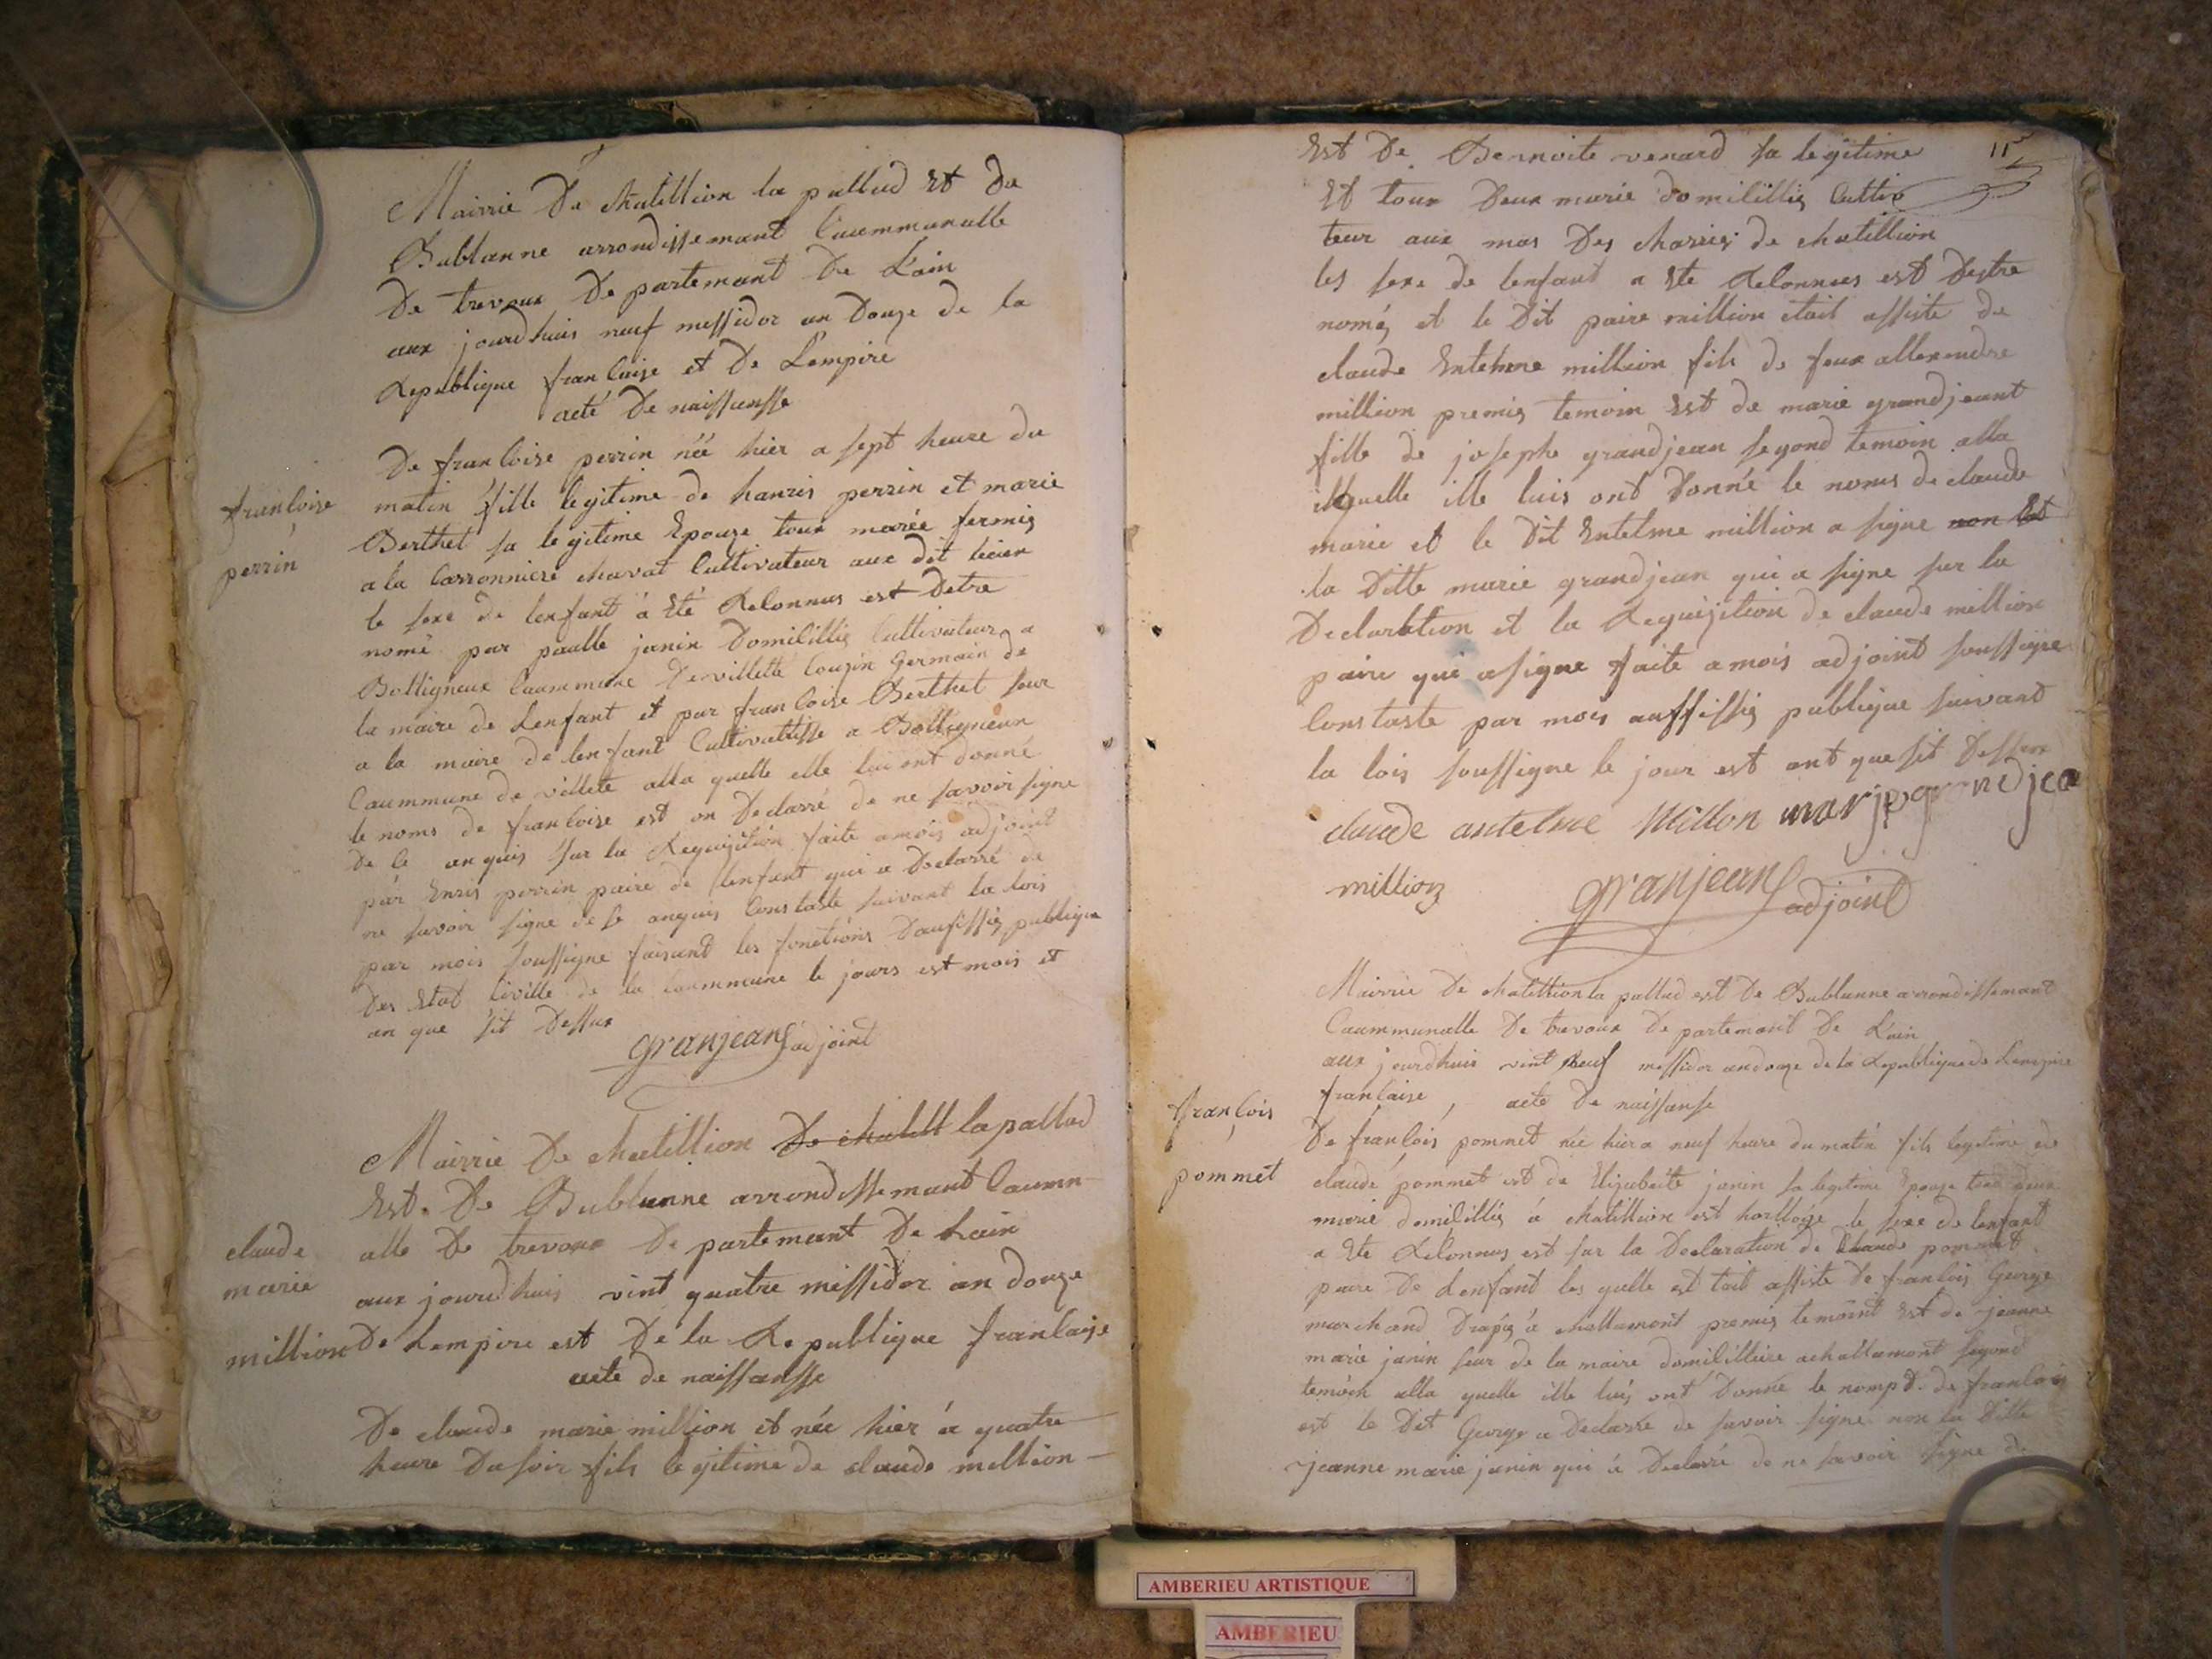 Mairrie De chatillion la pallud Et De
Bublanne arrondissemant Caummunalle
De trevoux De partemant De L'ain
aux jourdhuis neuf messidor an Douze de la
Republique francaise et De L'empire
acté De naissansse
francoise
perrin
De francoise perrin néé hier a sept heure du
matin fille legitime de hanris perrin et marie
Berthet sa legitime Epouze toux mariée fermis
a la Carronniere chavat Cultivateur aux dit lieux
le sexe de lenfant à Eté Reconnus est Detre
nomé par paulle janin Domicillié Cultivateur a
Bolligneux Caummune De villette Couzin Germain de
la maire de Lenfant et par francoise Berthet seur
a la maire de lenfant Cultivatrisse a Bolligneux
Caummune de villete alla quelle elle lui ont donné
le noms de francoise est on Declarré de ne savoir signe
De Ce anquis sur la Requizition faite amois adjoint
pár Enris perrin paire de lenfant qui a Declarré de
ne savoir signe de se anquis Constaste suivant la lois
par mois soussigne faisant les fonctions Daufissiés publique
Des Etat Civille de la Caummune le jours est mois et
an que sit Dessux
granjean adjoint
Mairrie De chatillion De chatill la pallud
Est. De Bublanne arrondissemant Caumn-
alle De trevoux De partemant De Lain
claude
marie
million
aux jourdhuis vint quatre missidor an douze
De Lempire est De la Republique francaise
acte de naissansse
De claude marie million et née hier á quatre
heure Du soir fils legitime de claude million
11
Est De Bennoite venard sa legitime
Et toux Deux marie domicilliés Cultiva
teur aux mas Des charriés de chatillion
les sexe de lenfant a Ete Reconnues est Destre
nomé, et le Dit paire million était assiste de
claude Entelme million fils de feux allexendre
million premiés temoin Est de marie grandjeant
fille de josephe grandjean segond temoin alla
quelle ille luis ont Donné le noms de claude
marie et le Dit Entelme million a signe non Est
la Ditte marie grandjean qui a signe sur la
Declarktion et la Requizition de claude million
paire qui a signe faite a mois adjoint soussigne
Constaste par mois auffissiés publique suivant
la lois soussigne le jour est ant que sit Dessux
claude antelme Millon marje grandjea
million
granjean adjoint
Mairrie De chatillion la pallud est De Bublanne arrondissemant
Caummunalle De trevoux De partemant De L'ain
aux jourdhuis vint neuf messidor an douze de la Republique de Lempire
francaise, acte De naissanse
françois
pommet
De francois pommet née hier a neuf heure du matin fils legitime de
claude pommet est de Elizabeite janin sa legitime Epouze tous deux
marié domicilliés á chatillion est horlloge le sexe de lenfant
a Ete Reconnus est sur la Declaration de Claude pommet
paire De Lenfant les quelle est tait assiste De francois George
marchand Drapié á challamont premiés temoint Est de jeanne
marie janin seur de la maire domicilliée a challamont segond
temoin alla quelle ille luis ont Donné le nomps. de francois
est le Dit George a Declarré de savoir signe non la Ditte
jeanne marie janin qui á Declaré de ne savoir signe de
AMBERIEU ARTISTIQUE
AMBERIEU